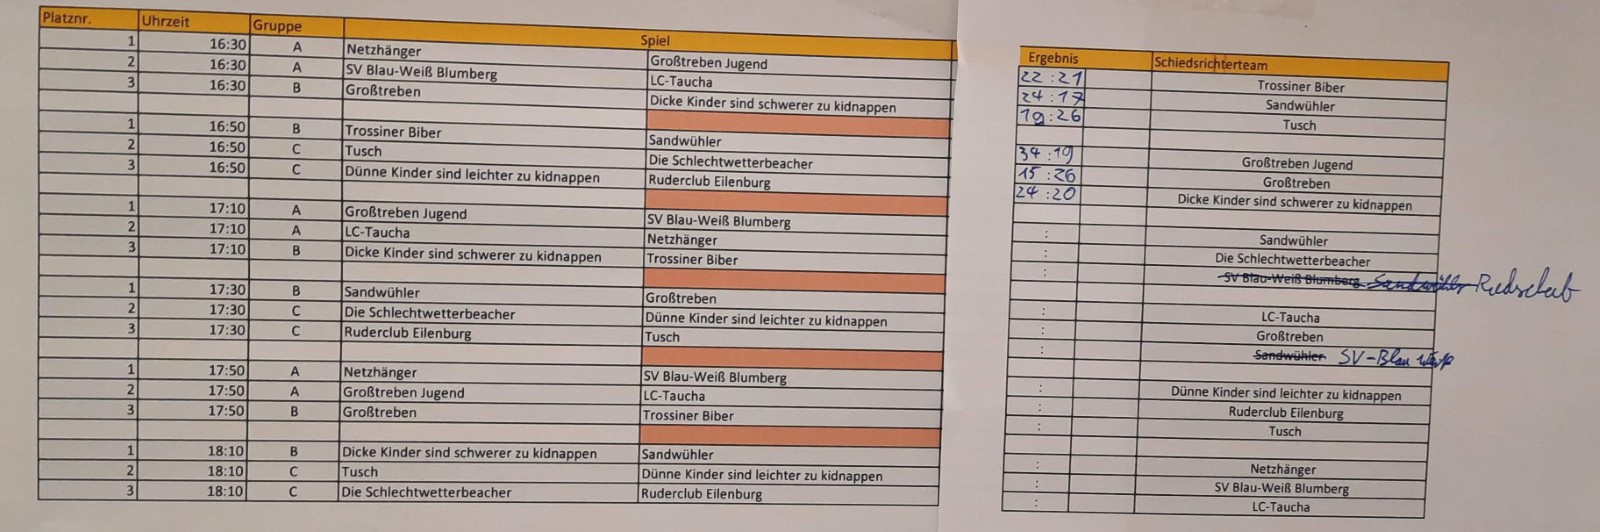 Platznr. Uhrzeit Gruppe Spiel Ergebnis Schiedsrichterteam
1 16:30 A Netzhänger Großtreben Jugend 22 : 21 Trossiner Biber
2 16:30 A SV Blau-Weiß Blumberg LC-Taucha 24 : 17 Sandwühler
3 16:30 B Großtreben Dicke Kinder sind schwerer zu kidnappen 19 : 26 Tusch
1 16:50 B Trossiner Biber Sandwühler 34 : 19 Großtreben Jugend
2 16:50 C Tusch Die Schlechtwetterbeacher 15 : 26 Großtreben
3 16:50 C Dünne Kinder sind leichter zu kidnappen Ruderclub Eilenburg 24 : 20 Dicke Kinder sind schwerer zu kidnappen
1 17:10 A Großtreben Jugend SV Blau-Weiß Blumberg : Sandwühler
2 17:10 A LC-Taucha Netzhänger : Die Schlechtwetterbeacher
3 17:10 B Dicke Kinder sind schwerer zu kidnappen Trossiner Biber : SV Blau-Weiß Blumberg Sandwühler
1 17:30 B Sandwühler Großtreben : LC-Taucha
2 17:30 C Die Schlechtwetterbeacher Dünne Kinder sind leichter zu kidnappen : Großtreben
3 17:30 C Ruderclub Eilenburg Tusch : Sandwühler SV-Blau Weiß
1 17:50 A Netzhänger SV Blau-Weiß Blumberg : Dünne Kinder sind leichter zu kidnappen
2 17:50 A Großtreben Jugend LC-Taucha : Ruderclub Eilenburg
3 17:50 B Großtreben Trossiner Biber : Tusch
1 18:10 B Dicke Kinder sind schwerer zu kidnappen Sandwühler : Netzhänger
2 18:10 C Tusch Dünne Kinder sind leichter zu kidnappen : SV Blau-Weiß Blumberg
3 18:10 C Die Schlechtwetterbeacher Ruderclub Eilenburg : LC-Taucha